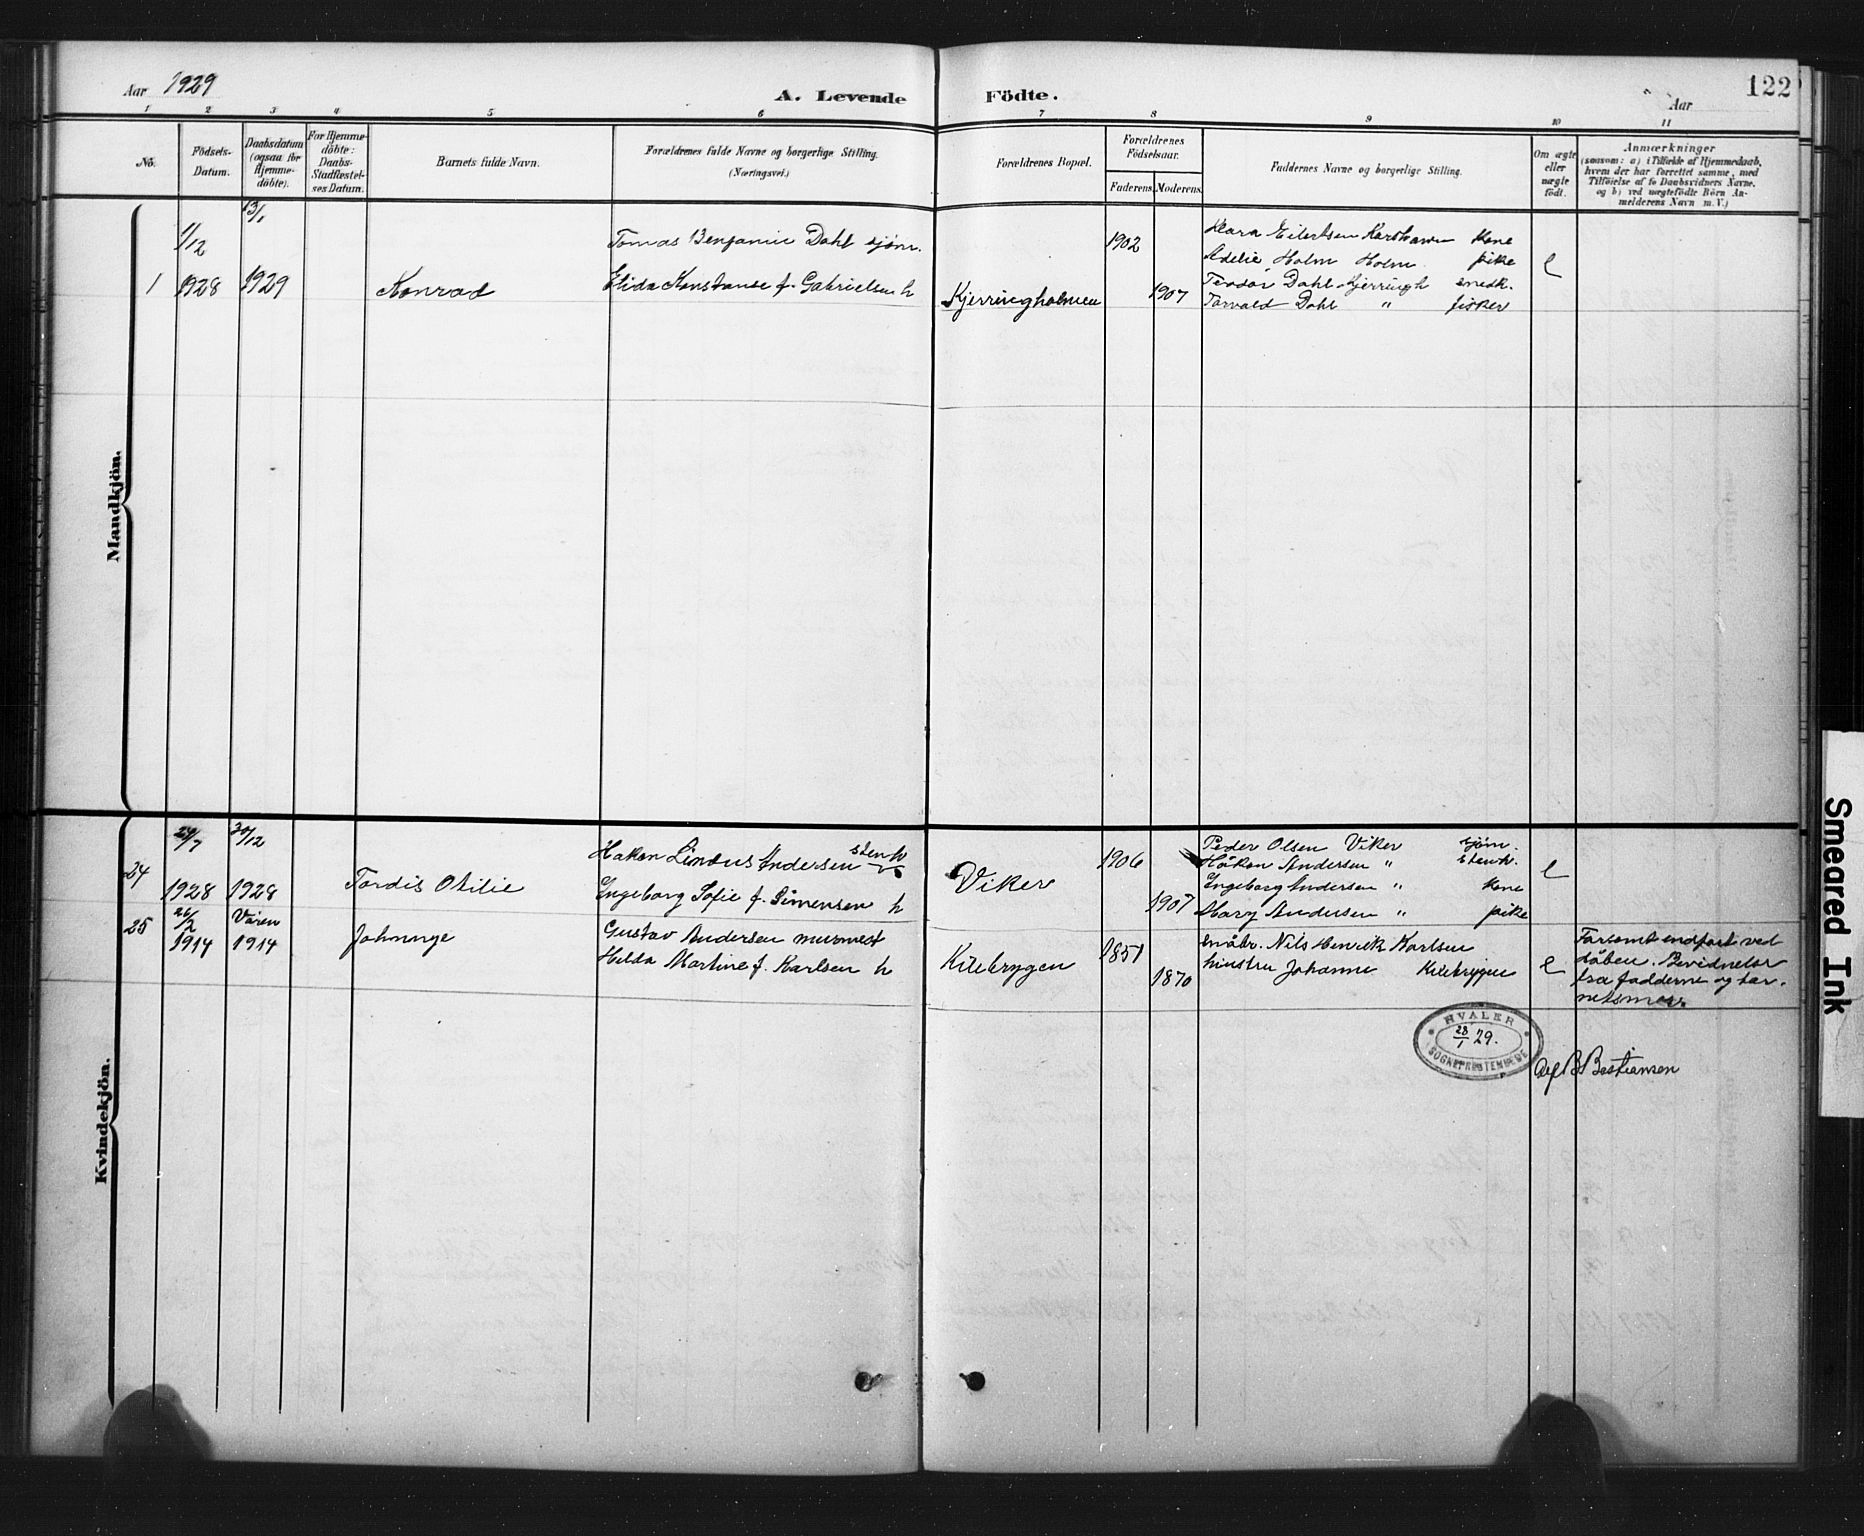 Aar 1929
A. Levende Födte.
Aar
122
1 2 3 4 5 6 7 8 9 10 11
No.
Födsels-
Datum.
Daabsdatum
(ogsaa for
Hjemme-
döbte).
For Hjemme-
döbte:
Daabs-
Stadfæstel-
ses Datum.
Barnets fulde Navn.
Forældrenes fulde Navne og borgerlige Stilling.
(Næringsvei.)
Forældrenes Bopæl.
Forældrenes
Födselsaar.
Faderens.
Moderens.
Faddernes Navne og borgerlige Stilling.
Om ægte
eller
uægte
födt.
Anmærkninger
(saasom: a) i Tilfælde af Hjemmedaab,
hvem der har forrettet samme, med
Tilföielse af to Daabsvidners Navne,
og b) ved uægtefödte Börn An-
melderens Navn m. V.)
Mandkjön.
1
1/12
1928
13/1
1929
Konrad
Tomas Benjamin Dahl sjøm.
Elida Konstanse f. Gabrielsen h
Kjerringholmen
1902
1907
Klara Eilertsen kone
Adelie Holm Holm pike
Teodor Dahl Kjerringh snedk.
Torvald Dahl " fisker
e
Kvindekjön.
24
29/7
1928
30/12
1928
Tordis Otilie
Håkon Lindus Andersen stenh
Ingeborg Sofie f. Simensen h
Viker
1906
1907
Peder Olsen Viker sjøm.
Håkon Andersen " stenh.
Ingeborg Andersen " kone
Mary Andersen " pike
e
25
26/2
1914
Våren
1914
Johannye
Gustav Andersen murmest
Hilda Martine f. Karlsen h
Kilebrygen
1851
1870
småbr. Nils Henrik Karlsen
hustru Johanne Kilebrygen
e
Forsømt indført ved
dåben. Bevidnelse
fra fadderne og bar-
netsmor.
HVALER
28/1 29.
SOGNEPRESTEMBEDE
Alf B Bastiansen
Smeared Ink